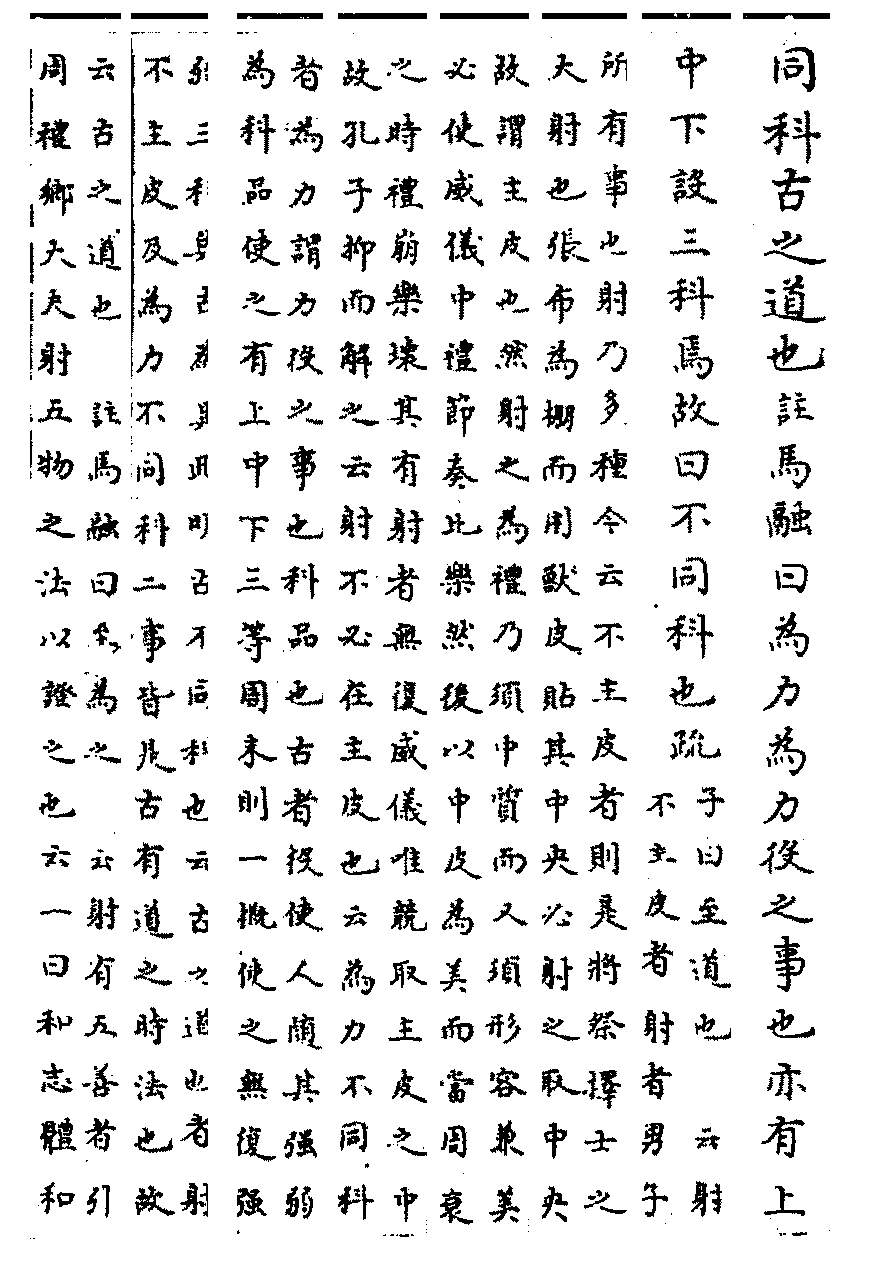 同科古之道也註馬融曰為力為力役之事也亦有上
中下設三科焉故曰不同科也疏
子曰至道也　云射
不主皮者射者男子
所有事也射乃多種今云不主皮者則是將祭擇士之
大射也張布為棚而用獸皮貼其中央必射之取中央
故謂主皮也然射之為禮乃須中質而又須形容兼美
必使威儀中禮節奏比樂然後以中皮為美而當周衰
之時禮崩樂壞其有射者無復威儀唯競取主皮之中
故孔子抑而解之云射不必在主皮也云為力不同科
者為力謂力役之事也科品也古者役使人隨其强弱
為科品使之有上中下三等周末則一概使之無復强
弱三科與古為異此明古不同科也云古之道也者射
不主皮及為力不同科二事皆是古有道之時法也故
云古之道也　註馬融曰至為之　云射有五善者引
周禮鄉大夫射五物之法以證之也云一曰和志體和